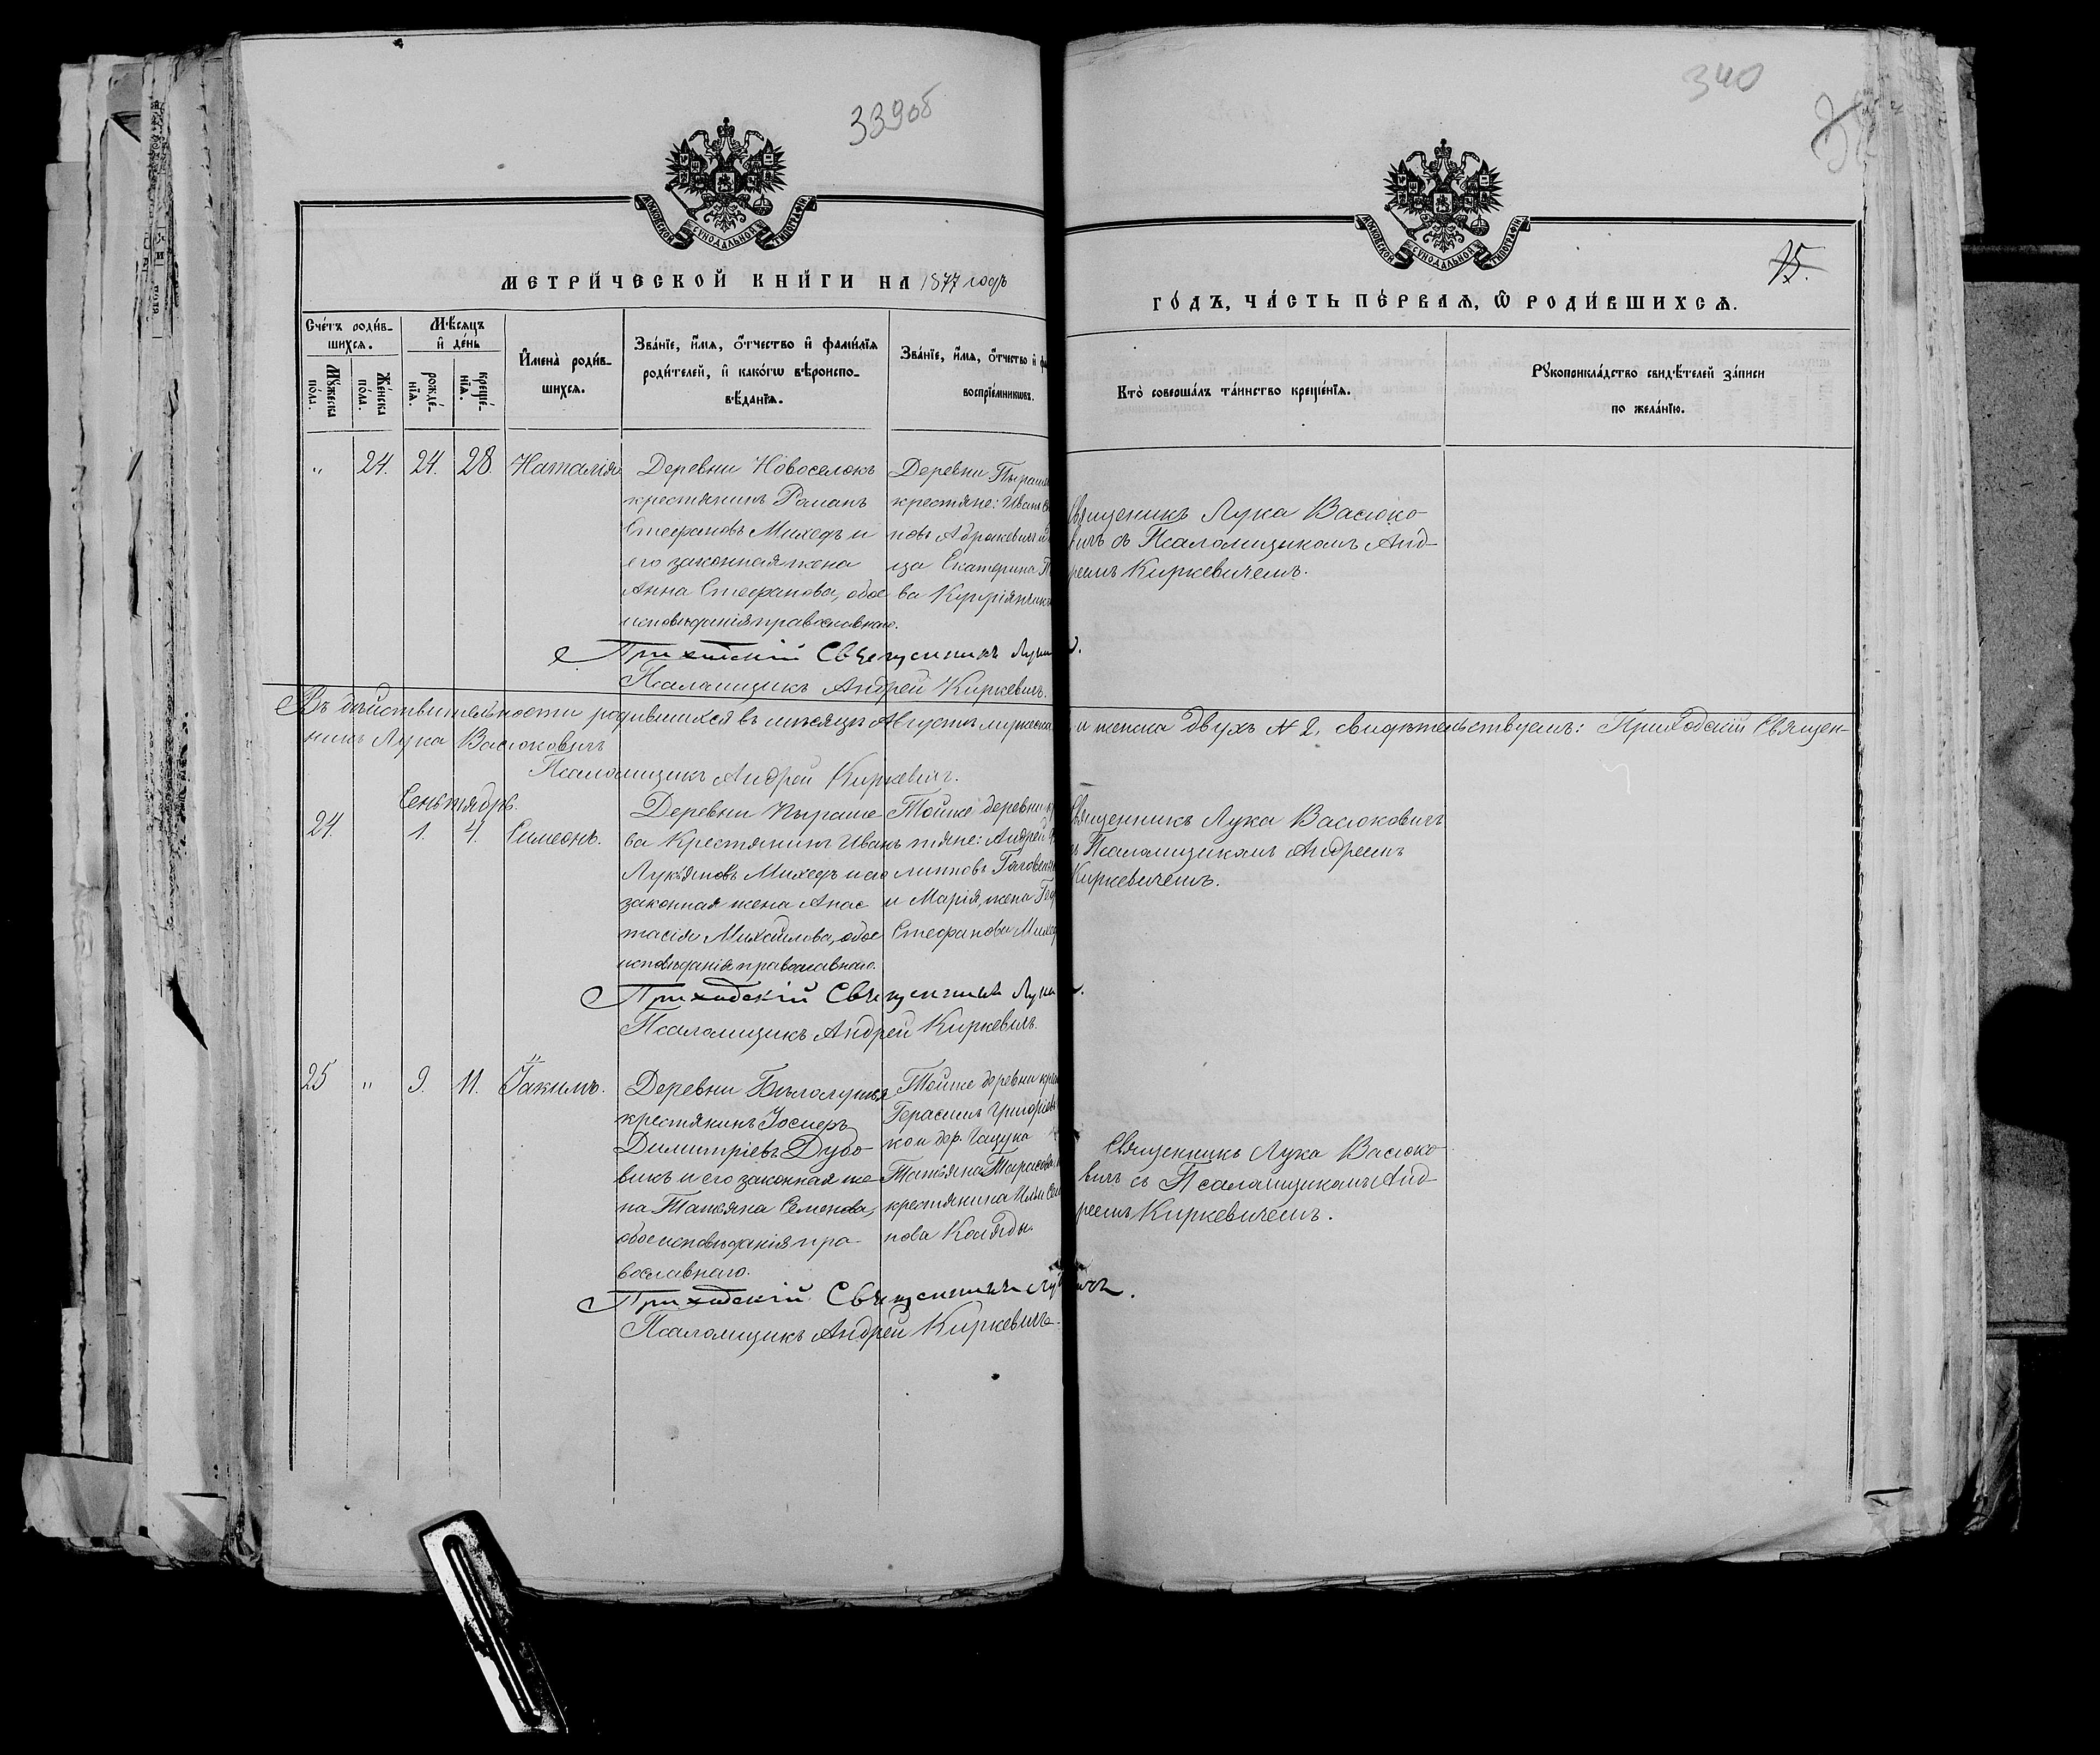 339об
340
МОСКОВСКОЙ СѴНОДАЛЬНОЙ ТИПОГРАФІИ
МОСКОВСКОЙ СѴНОДАЛЬНОЙ ТИПОГРАФІИ
15.
МЕТРИ́ЧЕСКОЙ КНИ́ГИ НА 1877 годъ
ГО́ДЪ, ЧА́СТЬ ПЕ́РВАѦ, Ѡ РОДИ́ВШИХСѦ.
Сче́тъ роди́в-
шихсѧ.
Му́жеска по́ла.
Же́нска по́ла.
Мѣ́сѧцъ и҆ де́нь
рожде́-
нїѧ.
креще́-
нїѧ.
И҆мена̀ роди́в-
шихсѧ.
Зва́нїе, и҆́мѧ, ѻ҆́тчество и҆ фами́лїѧ
роди́телей, и҆ како́гѡ вѣроиспо-
вѣ́данїѧ.
Зва́нїе, и҆́мѧ, ѻ҆́тчество и҆
воспрїе́мникѡвъ.
Кто̀ соверша́лъ та́инство креще́нїѧ.
Рꙋкоприкла́дство свидѣ́телей за́писи
по жела́нїю.
„ 24. 24. 28. Наталія
Деревни Новоселокъ
крестьянинъ Романъ
Стефановъ Михедъ и
его законная жена
Анна Стефанова, обое
исповѣданія православнаго.
Деревни
крестьяне: Иванъ
новъ
ца Екатерина
ва
Священникъ Лука Васюко-
вичъ съ Псаломщикомъ Анд-
реемъ Киркевичемъ.
Приходскій Священникъ Лука
Псаломщикъ Андрей Киркевичъ.
Въ дѣйствительности родившихся въ мѣсяцѣ Августѣ мужеска и женска двухъ № 2, свидѣтельствуемъ: Приходскій Священ-
никъ Лука Васюковичъ
Псаломщикъ Андрей Киркевичъ.
Сентябрь.
24. 1. 4. Симеонъ.
Деревни Пыраше
ва Крестьянинъ Иванъ
Лукьяновъ Михедъ и его
законная жена Анас
тасія Михайлова, обое
исповѣданія православнаго.
Тойже деревни
тяне: Андрей
липповъ
и Марія, жена
Стефанова
Священникъ Лука Васюковичъ
Псаломщикамъ Андреемъ
Киркевичемъ.
Приходскій Священникъ Лука
Псаломщикъ Андрей Киркевичъ.
25 „ 9. 11. Іакимъ.
Деревни
крестьянинъ Іосифъ
Димитріевъ Дубо-
викъ и его законная же-
на Татьяна Семенова,
обое исповѣданія пра-
вославнаго.
Тойже деревни
Герасимъ Григорьевъ
дер. Гацука
Татьяна Тарасова
крестьянина Ильи
нова Коляды.
Священникъ Лука Васюко-
вичъ съ Псаламщикамъ Анд-
реемъ Киркевичемъ.
Приходскій Священникъ
Псаломщикъ Андрей Киркевичъ.